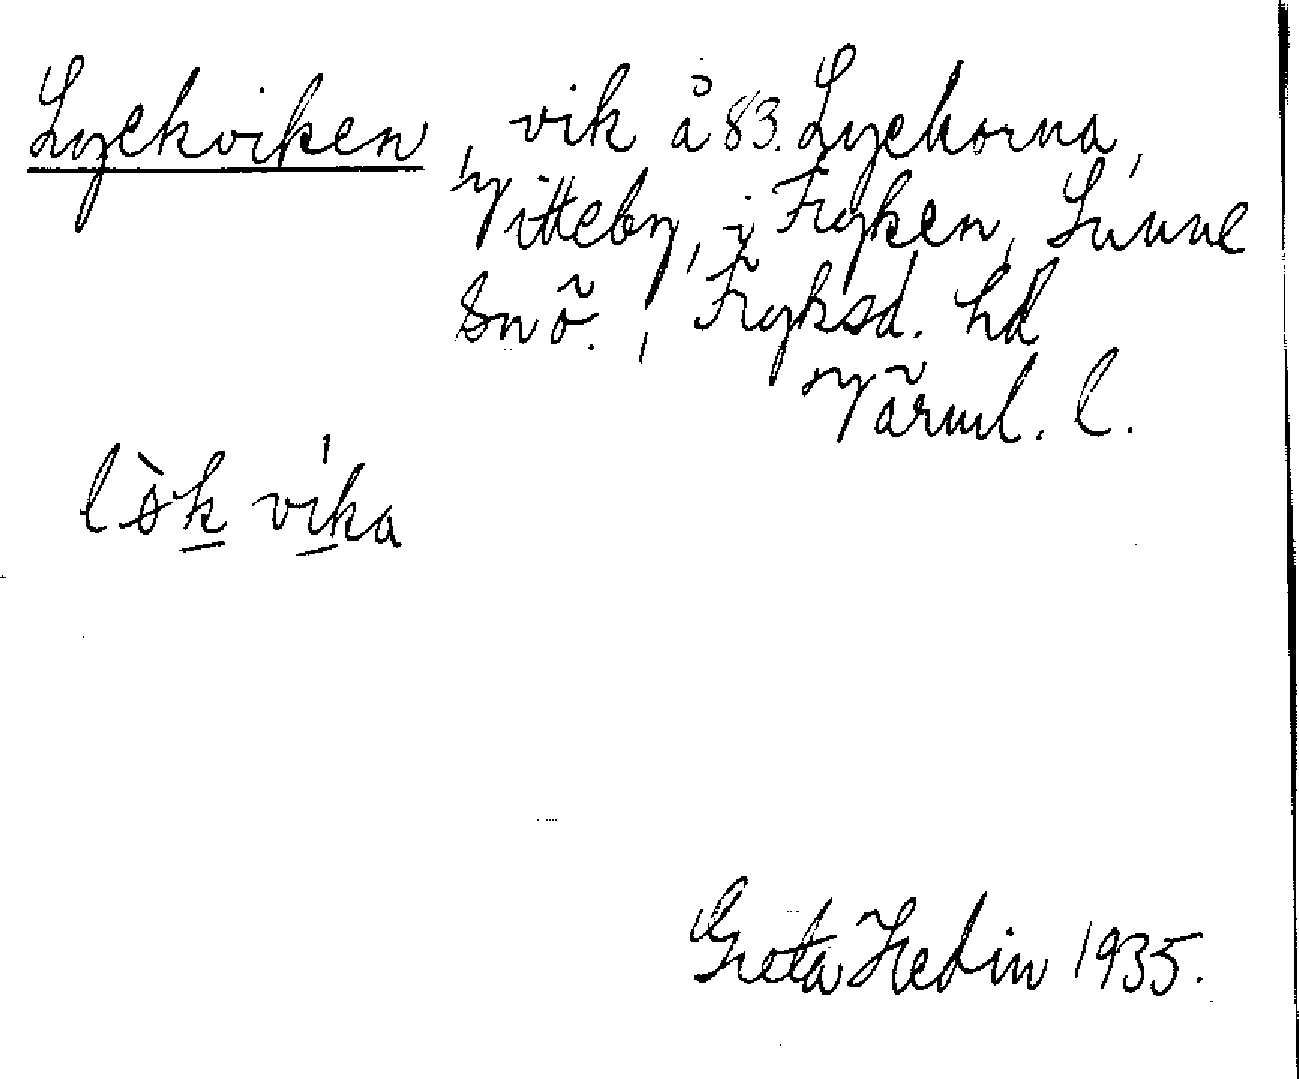 Lyckviken, vik å 83. Lyckorna,
Vitteby, i Fryken, Sunne
snö., Fryksd. hd
Värml. l.
lø̀k víka
Greta Hedin 1935.